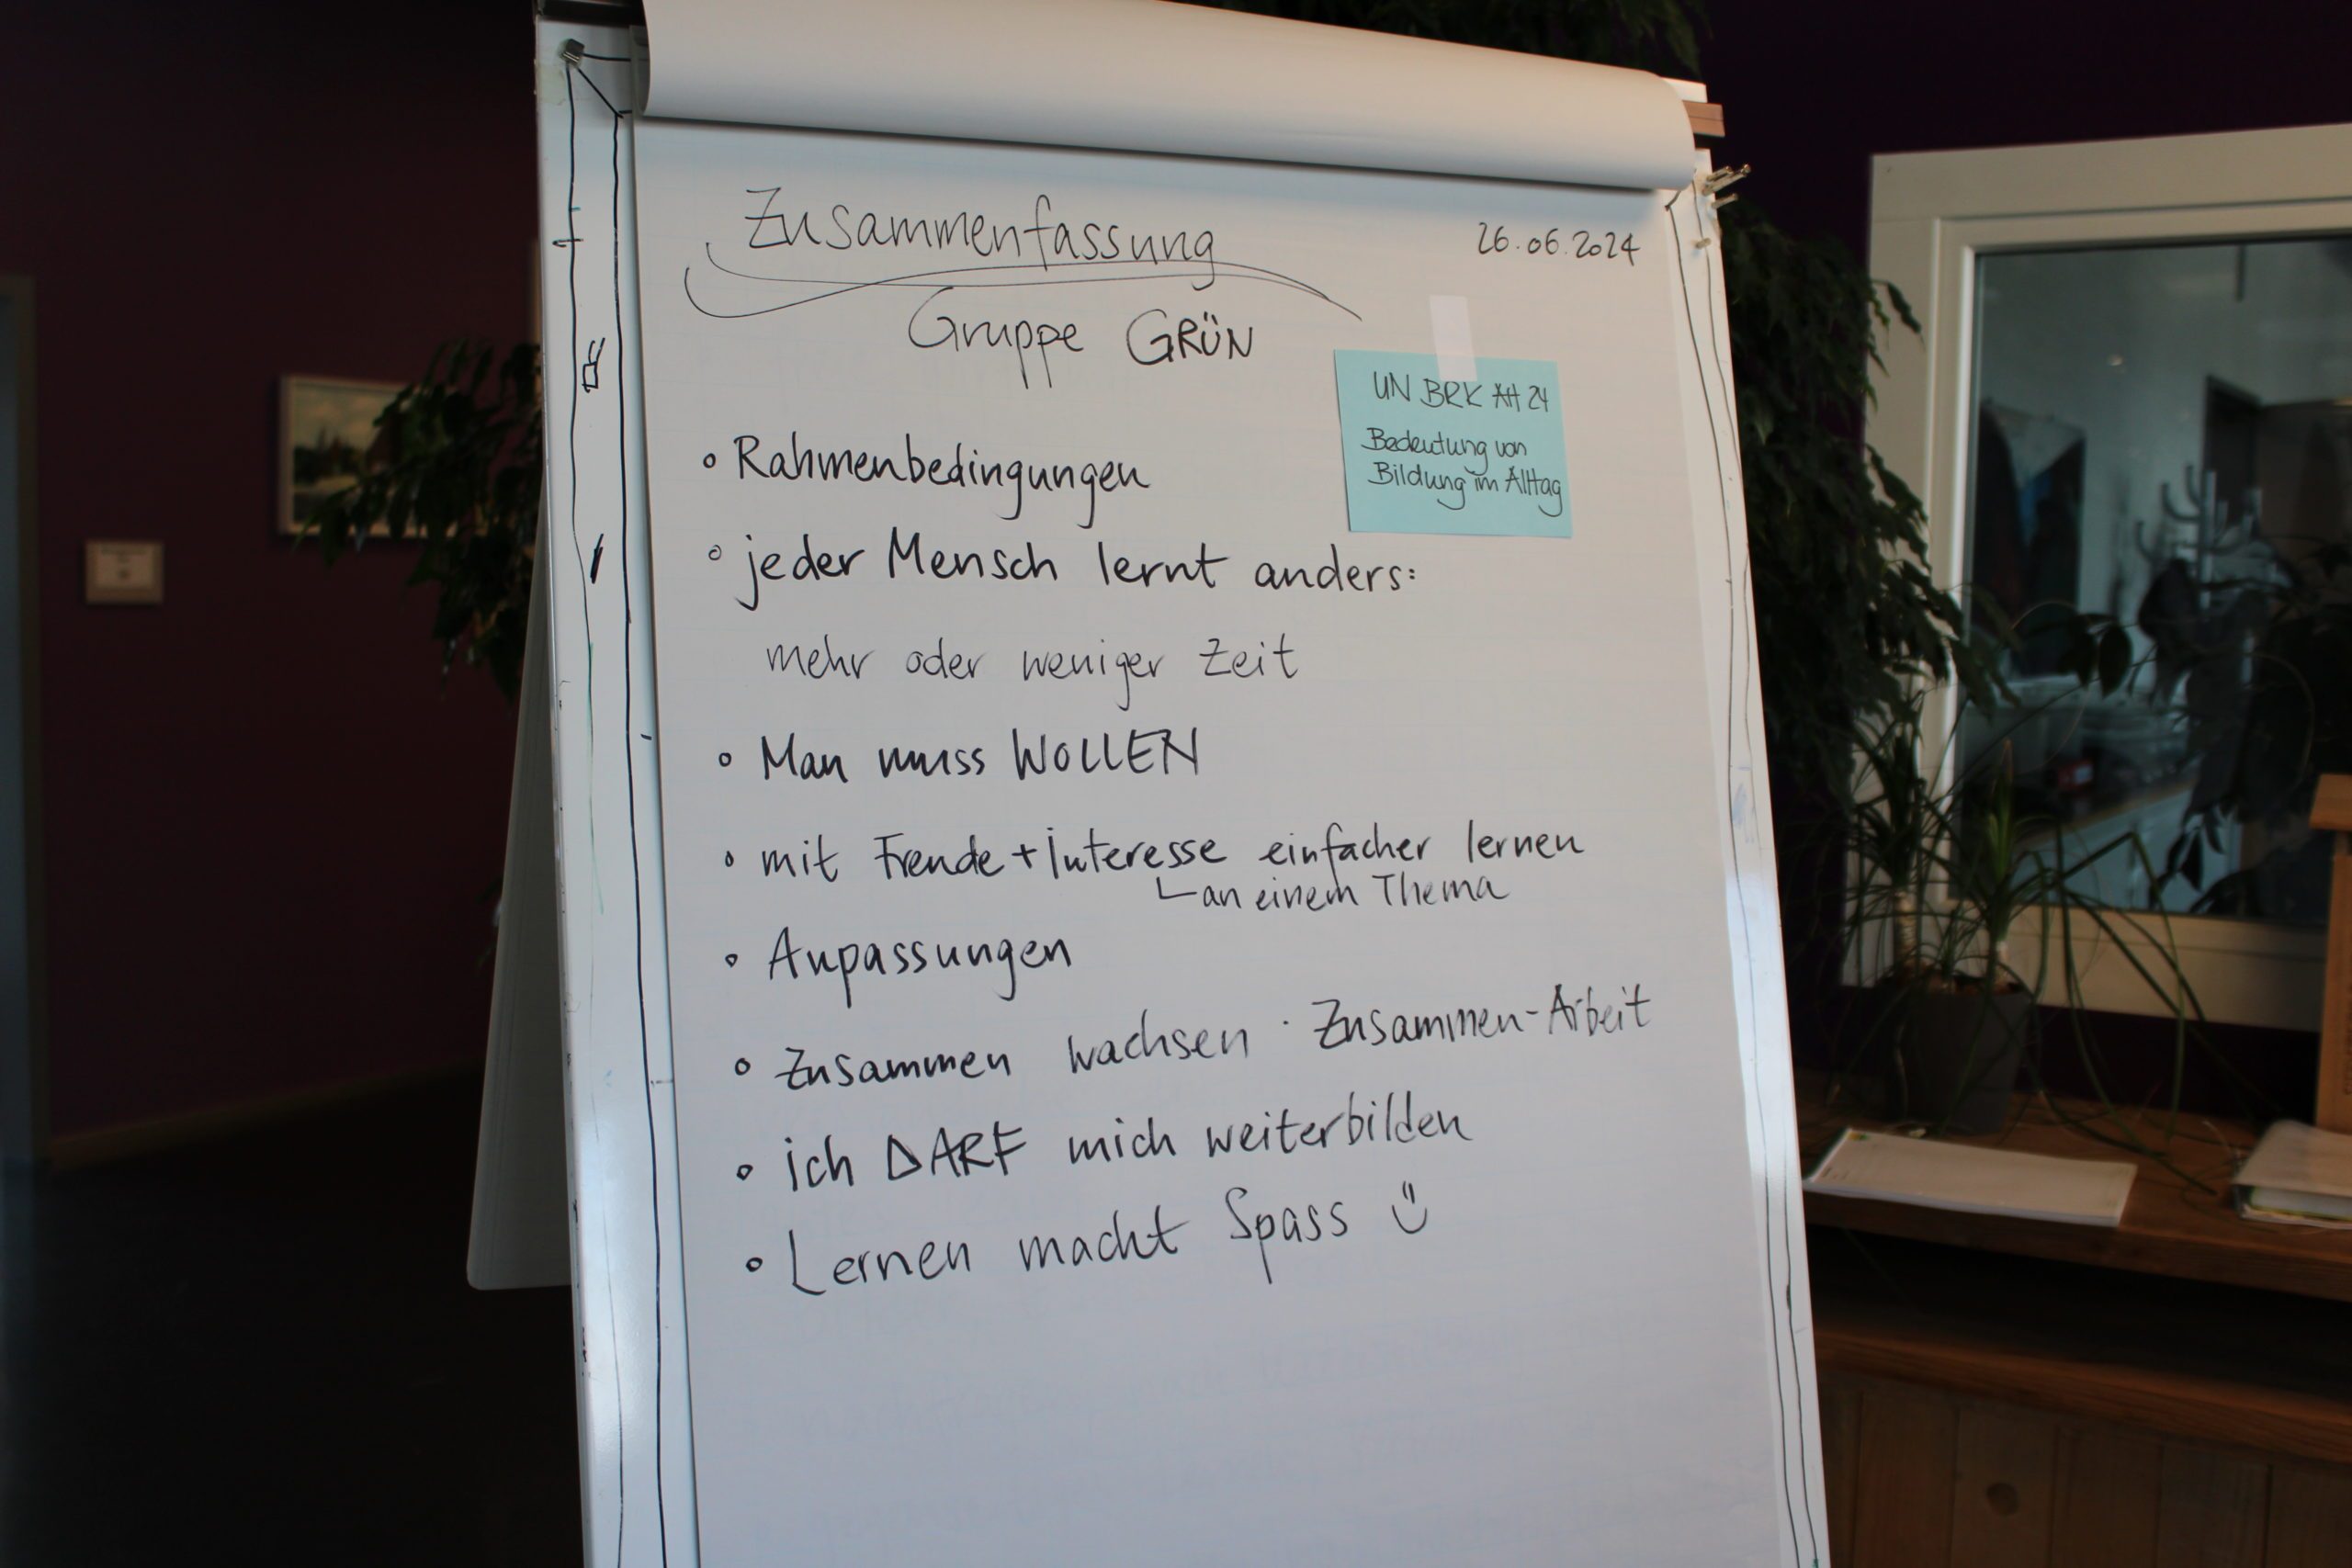 Zusammenfassung
26.06.2024
Gruppe GRÜN
UN BRK Art 24
Bedeutung von
Bildung im Alltag
• Rahmenbedingungen
• jeder Mensch lernt anders:
mehr oder weniger Zeit
• Man muss WOLLEN
• mit Freude + Interesse einfacher lernen
an einem Thema
• Anpassungen
• Zusammen wachsen · Zusammen-Arbeit
• ich DARF mich weiterbilden
• Lernen macht Spass